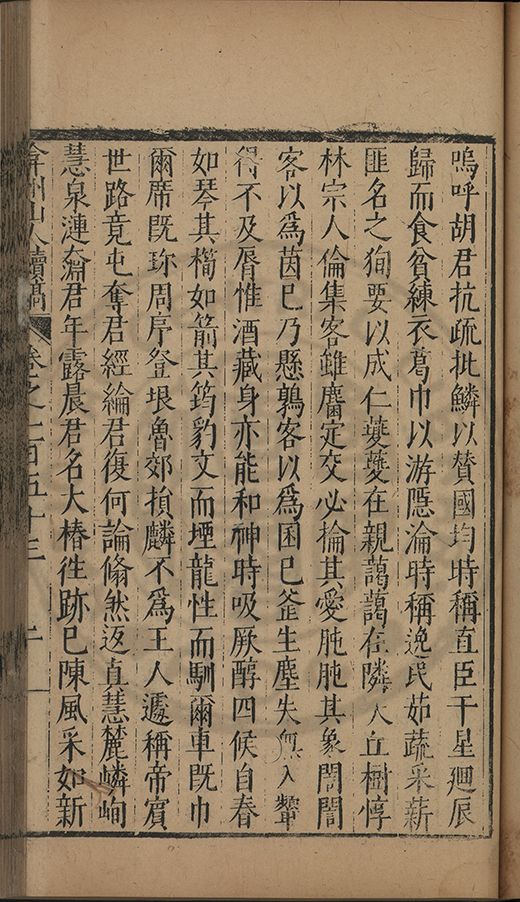 嗚呼胡君抗疏批鱗以贊國均時稱直臣干星廻辰
歸而食貧練衣葛巾以游隱淪時稱逸民茹蔬采薪
匪名之狥要以成仁夔夔在親藹藹在隣人丘樹惇
林宗人倫集客雖麕定交必掄其愛肫肫其象誾誾
客以爲茵巳乃懸鶉客以爲囷巳釜生塵失無入顰
得不及脣惟酒藏身亦能和神時吸厥醇四候自春
如琴其櫍如箭其筠豹文而堙龍性而馴爾車既巾
爾席既珎周序登垠魯郊損麟不爲王人遽稱帝賓
世路竟屯奪君經綸君復何論翛然返眞慧麓嶙峋
慧泉漣淪君年露晨君名大椿徃跡巳陳風采如新
弇州山人續稿 卷之一百五十三